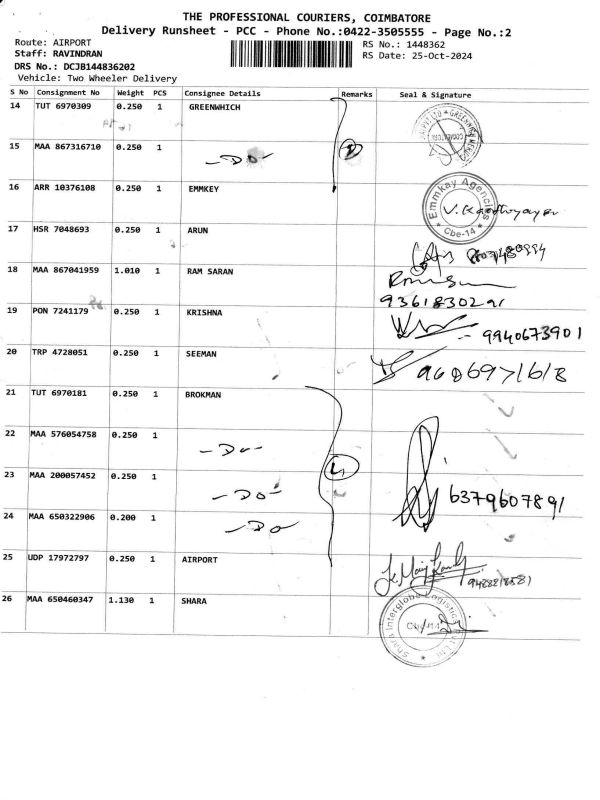 THE PROFESSIONAL COURIERS, COIMBATORE
Delivery Runsheet - PCC - Phone No.:0422-3505555 - Page No.:2
Route: AIRPORT
RS No.: 1448362
Staff: RAVINDRAN
RS Date: 25-Oct-2024
DRS No.: DCJB144836202
Vehicle: Two Wheeler Delivery
S No Consignment No Weight PCS Consignee Details Remarks Seal & Signature
14 TUT 6970309 0.250 1 GREENWHICH
15 MAA 867316710 0.250 1 -Do-
16 ARR 10376108 0.250 1 EMMKEY Emmkay Agencies Cbe-14
17 HSR 7048693 0.250 1 ARUN
18 MAA 867041959 1.010 1 RAM SARAN
9361830291
19 PON 7241179 0.250 1 KRISHNA 9940673901
20 TRP 4728051 0.250 1 SEEMAN
21 TUT 6970181 0.250 1 BROKMAN
22 MAA 576054758 0.250 1 -Do-
23 MAA 200057452 0.250 1 -Do- 6379607891
24 MAA 650322906 0.200 1 -Do
25 UDP 17972797 0.250 1 AIRPORT
26 MAA 650460347 1.130 1 SHARA Shara Interglobe Logistics Pvt Ltd